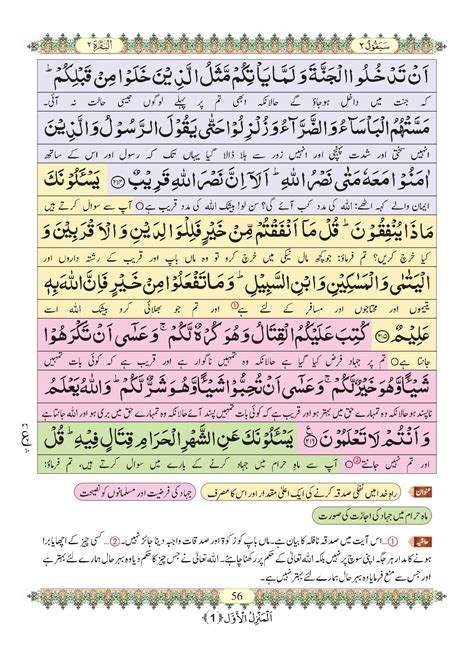 سَيَقُوْلُ ٢
اَلْبَقَرَة ٢
اَنْ تَدْخُلُوا الْجَنَّةَ وَلَمَّا يَاْتِكُمْ مَّثَلُ الَّذِيْنَ خَلَوْا مِنْ قَبْلِكُمْ ؕ
کہ جنت میں داخل ہوجاؤ گے حالانکہ ابھی تم پر پہلے لوگوں جیسی حالت نہ آئی۔
مَسَّتْهُمُ الْبَاْسَآءُ وَالضَّرَّآءُ وَزُلْزِلُوْا حَتّٰى يَقُوْلَ الرَّسُوْلُ وَالَّذِيْنَ
انہیں سختی اور شدت پہنچی اور انہیں زور سے ہلا ڈالا گیا یہاں تک کہ رسول اور اس کے ساتھ
اٰمَنُوْا مَعَهٗ مَتٰى نَصْرُ اللّٰهِ ؕ اَلَاۤ اِنَّ نَصْرَ اللّٰهِ قَرِيْبٌ ﴿۲۱۴﴾ يَسْـَٔلُوْنَكَ
ایمان والے کہہ اٹھے: اللہ کی مدد کب آئے گی؟ سن لو! بیشک اللہ کی مدد قریب ہے ○ آپ سے سوال کرتے ہیں
مَاذَا يُنْفِقُوْنَ ؕ قُلْ مَاۤ اَنْفَقْتُمْ مِّنْ خَيْرٍ فَلِلْوَالِدَيْنِ وَالْاَقْرَبِيْنَ وَ
کیا خرچ کریں؟ تم فرماؤ: جو کچھ مال نیکی میں خرچ کرو تو وہ ماں باپ اور قریب کے رشتہ داروں اور
الْيَتٰمٰى وَالْمَسٰكِيْنِ وَابْنِ السَّبِيْلِ ؕ وَمَا تَفْعَلُوْا مِنْ خَيْرٍ فَاِنَّ اللّٰهَ بِهٖ
یتیموں اور محتاجوں اور مسافر کے لئے ہے ① اور تم جو بھلائی کرو بیشک اللہ اسے
عَلِيْمٌ ﴿۲۱۵﴾ كُتِبَ عَلَيْكُمُ الْقِتَالُ وَهُوَ كُرْهٌ لَّكُمْ ۚ وَعَسٰۤى اَنْ تَكْرَهُوْا
جانتا ہے ○ تم پر جہاد فرض کیا گیا ہے حالانکہ وہ تمہیں ناگوار ہے اور قریب ہے کہ کوئی بات تمہیں
شَيْـًٔا وَّهُوَ خَيْرٌ لَّكُمْ ۚ وَعَسٰۤى اَنْ تُحِبُّوْا شَيْـًٔا وَّهُوَ شَرٌّ لَّكُمْ ؕ وَاللّٰهُ يَعْلَمُ
ناپسند ہو حالانکہ وہ تمہارے حق میں بہتر ہو اور قریب ہے کہ کوئی بات تمہیں پسند آئے حالانکہ وہ تمہارے حق میں بری ہو اور اللہ جانتا ہے
وَاَنْتُمْ لَا تَعْلَمُوْنَ ﴿۲۱۶﴾ يَسْـَٔلُوْنَكَ عَنِ الشَّهْرِ الْحَرَامِ قِتَالٍ فِيْهِ ؕ قُلْ
اور تم نہیں جانتے ② ○ آپ سے ماہِ حرام میں جہاد کرنے کے بارے میں سوال کرتے ہیں، تم فرماؤ:
عنوان راہِ خدا میں نفلی صدقہ کرنے کی ایک اعلیٰ مقدار اور اس کا مصرف جہاد کی فرضیت اور مسلمانوں کو نصیحت
ماہِ حرام میں جہاد کی اجازت کی صورت
حاشیہ ①… اس آیت میں صدقہ نافلہ کا بیان ہے۔ ماں باپ کو زکوٰۃ اور صدقات واجبہ دینا جائز نہیں۔ ②… کسی چیز کے اچھا یا برا
ہونے کا مدار ہر جگہ اپنی سوچ پر نہیں بلکہ اللہ تعالیٰ کے حکم پر رکھنا چاہئے۔ اللہ تعالیٰ نے جس چیز کا حکم دیا وہ بہر حال ہمارے لئے بہتر ہے
اور جس سے منع فرما دیا وہ بہر حال ہمارے لئے بہتر نہیں ہے۔
56
اَلْمَنْزِلُ الْاَوَّل ﴿1﴾